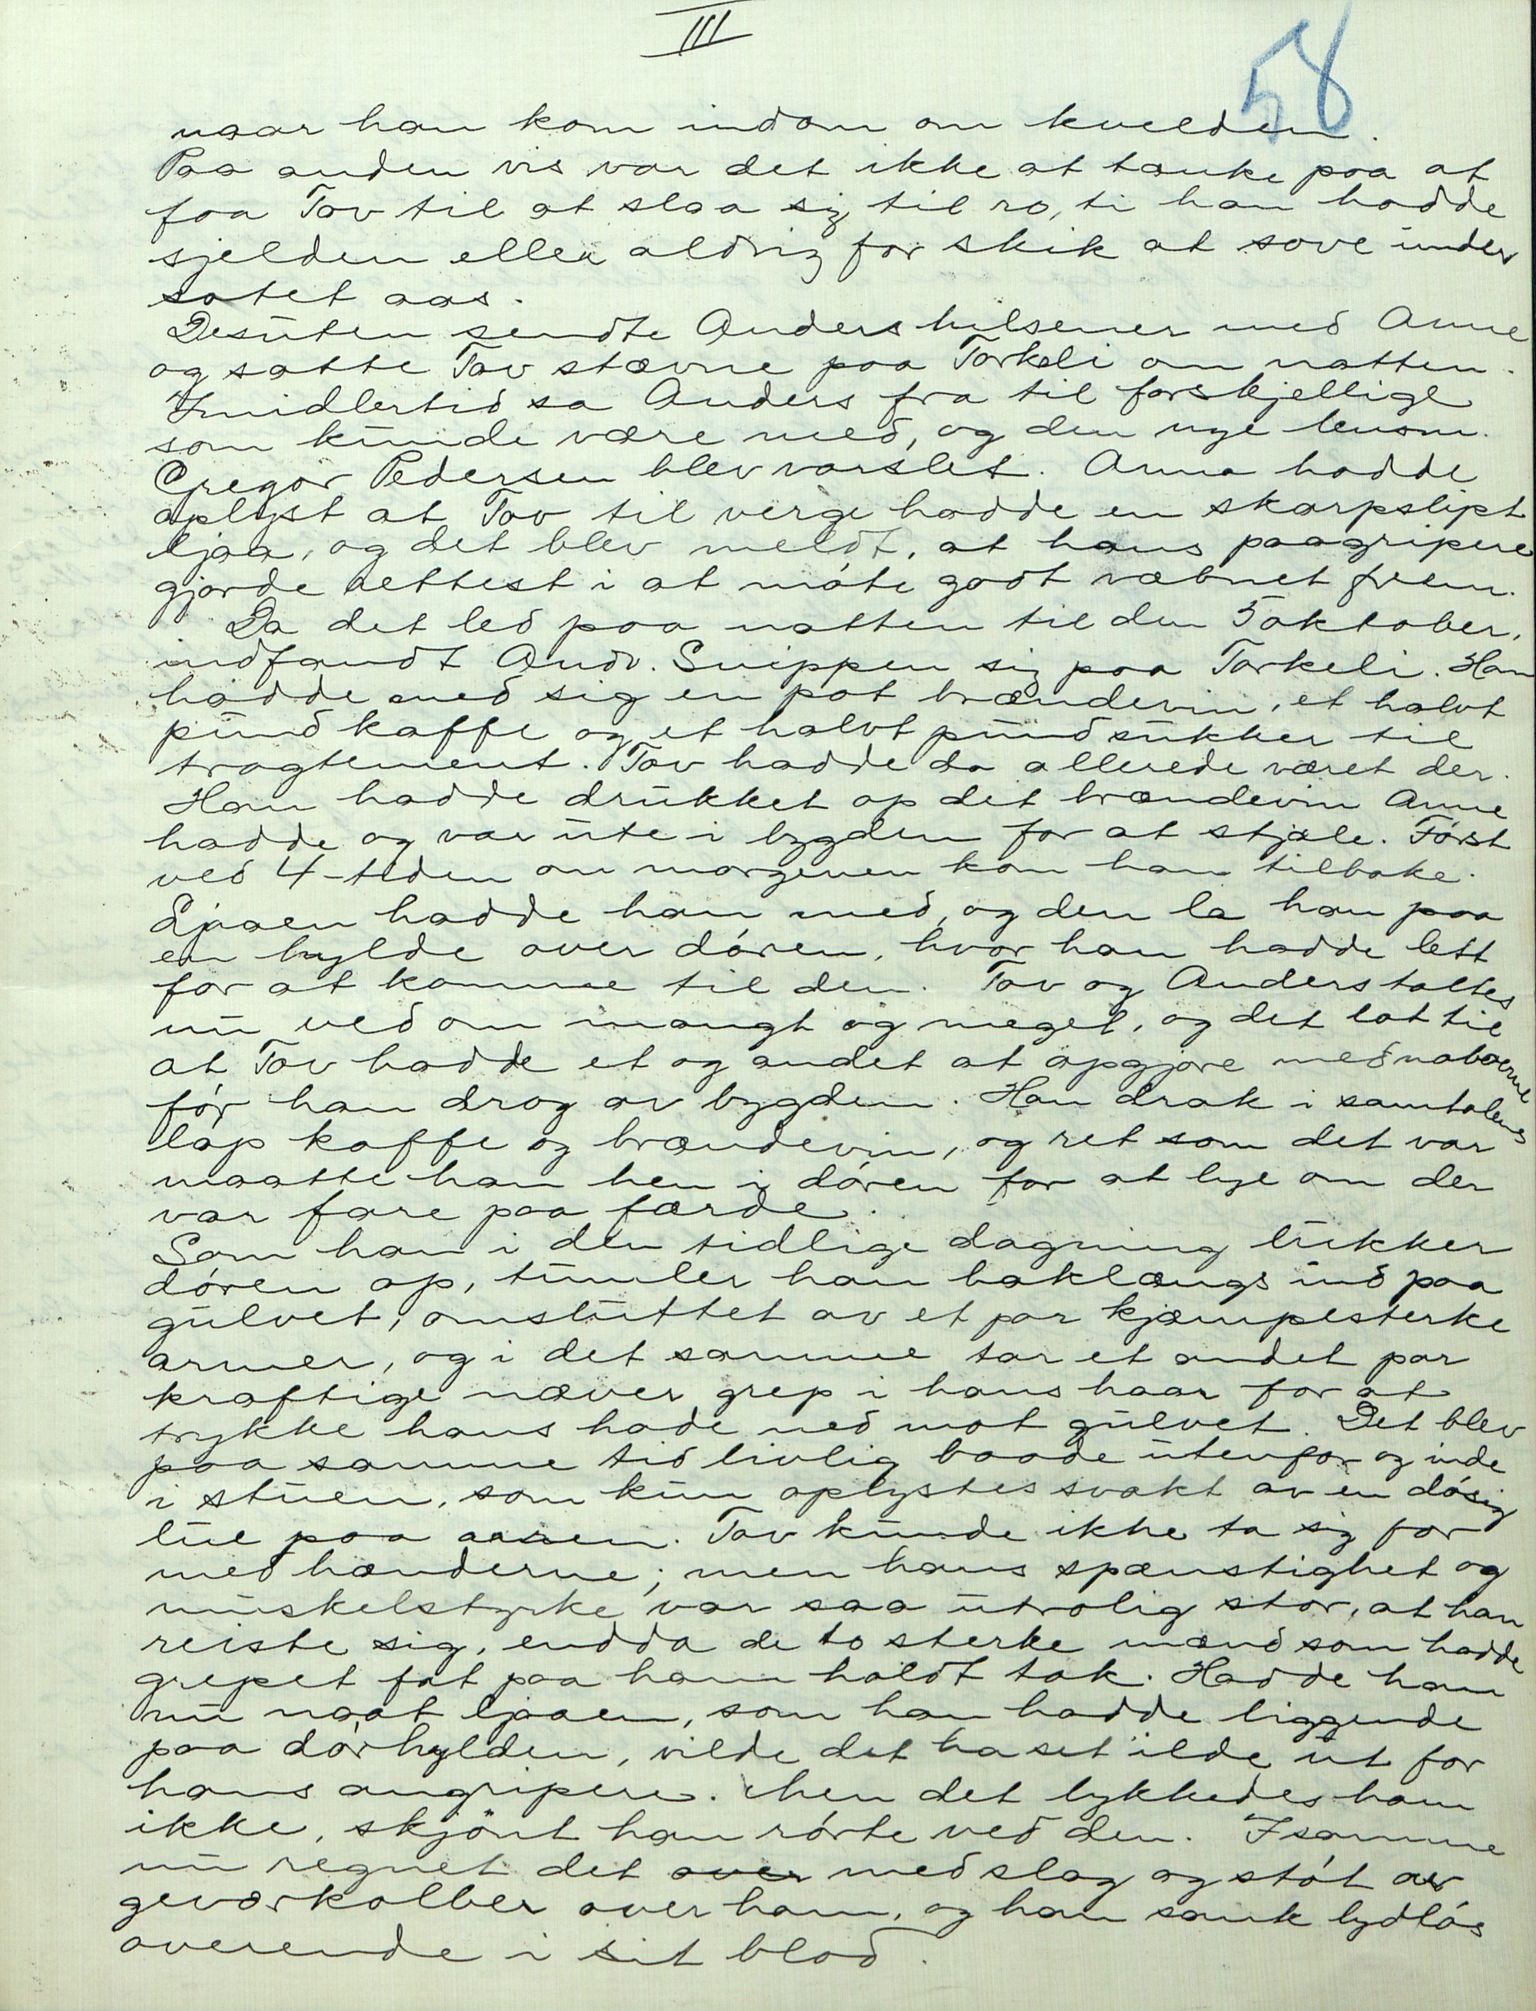 III
58
naar han kom indom om kvelden.
Paa anden vis var det ikke at tænke paa at
faa Tov til at slaa sig til ro, ti han hadde
sjelden eller aldrig for skik at sove under
sotet aas.
Desuten sendte Anders hilsener med Anne
og satte Tov stævne paa Torkeli om natten.
Imidlertid sa Anders fra til forskjellige
som kunde være med, og den nye lensm.
Gregor Pedersen blev varslet. Anna hadde
oplyst at Tov til verge hadde en skarpslipt
ljaa, og det blev meldt, at hans paagripere
gjorde rettest i at møte godt væbnet frem.
Da det led paa natten til den 5 oktober,
indfandt And. Snippen sig paa Torkeli. Han
hadde med sig en pot brændevin, et halvt
pund kaffe og et halvt pund sukker til
tragtement. Tov hadde da allerede været der.
Han hadde drukket op det brændevin Anne
hadde og var ute i bygden for at stjæle. Først
ved 4-tiden om morgenen kom han tilbake.
Ljaaen hadde han med, og den la han paa
en hylde over døren, hvor han hadde lett
for at komme til den. Tov og Anders taltes
nu ved om mangt og meget, og det lot til
at Tov hadde et og andet at opgjøre med naboerne
før han drog av bygden. Han drak i samtalens
løp kaffe og brændevin, og ret som det var
maatte han hen i døren for at lye om der
var fare paa færde.
Som han i den tidlige dagning lukker
døren op, tumler han baklængs ind paa
gulvet, omsluttet av et par kjæmpesterke
armer, og i det samme tar et andet par
kraftige næver grep i hans haar for at
trykke hans hode ned mot gulvet. Det blev
paa samme tid livlig baade utenfor og inde
i stuen, som kun oplystes svakt av en døsig
lue paa aaren. Tov kunde ikke ta sig for
med hænderne; men hans spænstighet og
muskelstyrke var saa utrolig stor, at han
reiste sig, endda de to sterke mænd som hadde
grepet fat paa ham holdt tak. Hadde han
nu naat ljaaen, som han hadde liggende
paa dørhylden, vilde det ha set ilde ut for
hans angripere. Men det lykkedes ham
ikke, skjönt han rørte ved den. I samme
nu regnet det over med slag og støt av
geværkolber over ham, og han sank lydløs
overende i sit blod.